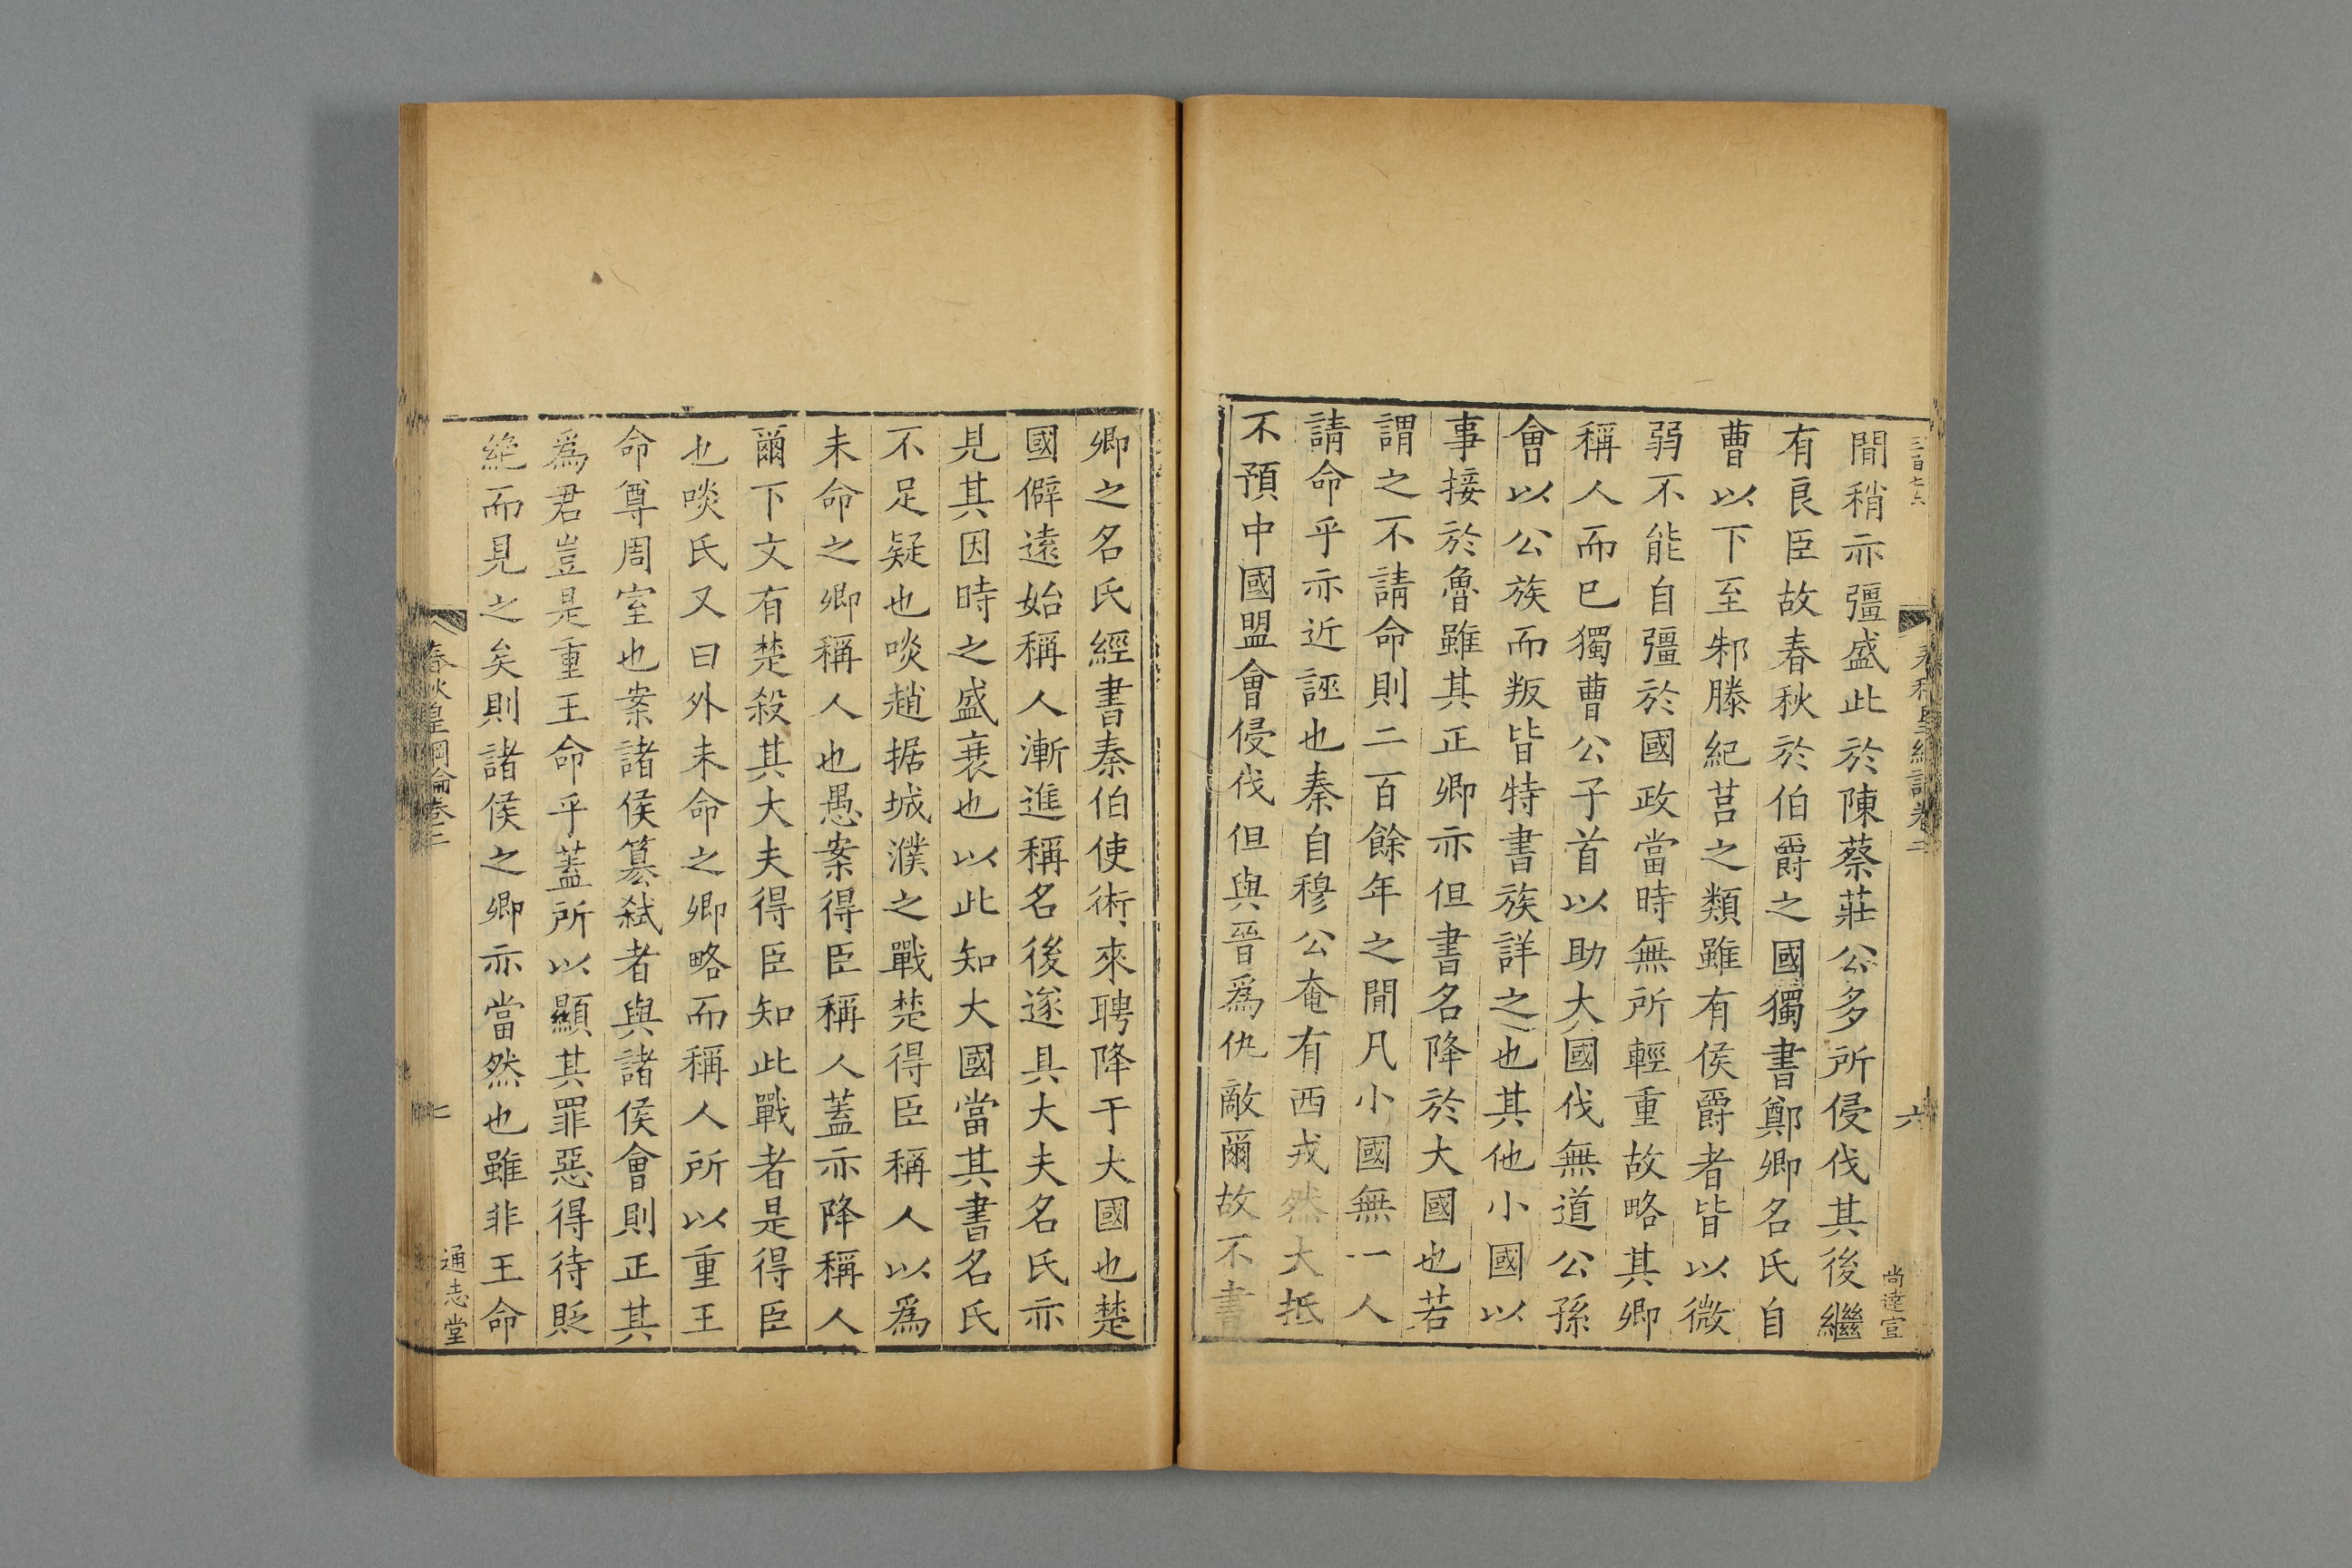 三百七六
春秋皇綱論卷二
六
尚逵宣
間稍亦彊盛此於陳蔡莊公多所侵伐其後繼
有良臣故春秋於伯爵之國獨書鄭卿名氏自
曹以下至邾滕紀莒之類雖有侯爵者皆以微
弱不能自彊於國政當時無所輕重故略其卿
稱人而已獨曹公子首以助大國伐無道公孫
會以公族而叛皆特書族詳之也其他小國以
事接於魯雖其正卿亦但書名降於大國也若
謂之不請命則二百餘年之間凡小國無一人
請命乎亦近誣也秦自穆公奄有西戎然大抵
不預中國盟會侵伐但與晉爲仇敵爾故不書
卿之名氏經書秦伯使術來聘降于大國也楚
國僻遠始稱人漸進稱名後遂具大夫名氏亦
見其因時之盛衰也以此知大國當其書名氏
不足疑也啖趙据城濮之戰楚得臣稱人以爲
未命之卿稱人也愚案得臣稱人蓋亦降稱人
爾下文有楚殺其大夫得臣知此戰者是得臣
也啖氏又曰外未命之卿略而稱人所以重王
命尊周室也案諸侯簒弑者與諸侯會則正其
爲君豈是重王命乎蓋所以顯其罪惡得待貶
絶而見之矣則諸侯之卿亦當然也雖非王命
春秋皇綱論卷二
七
通志堂